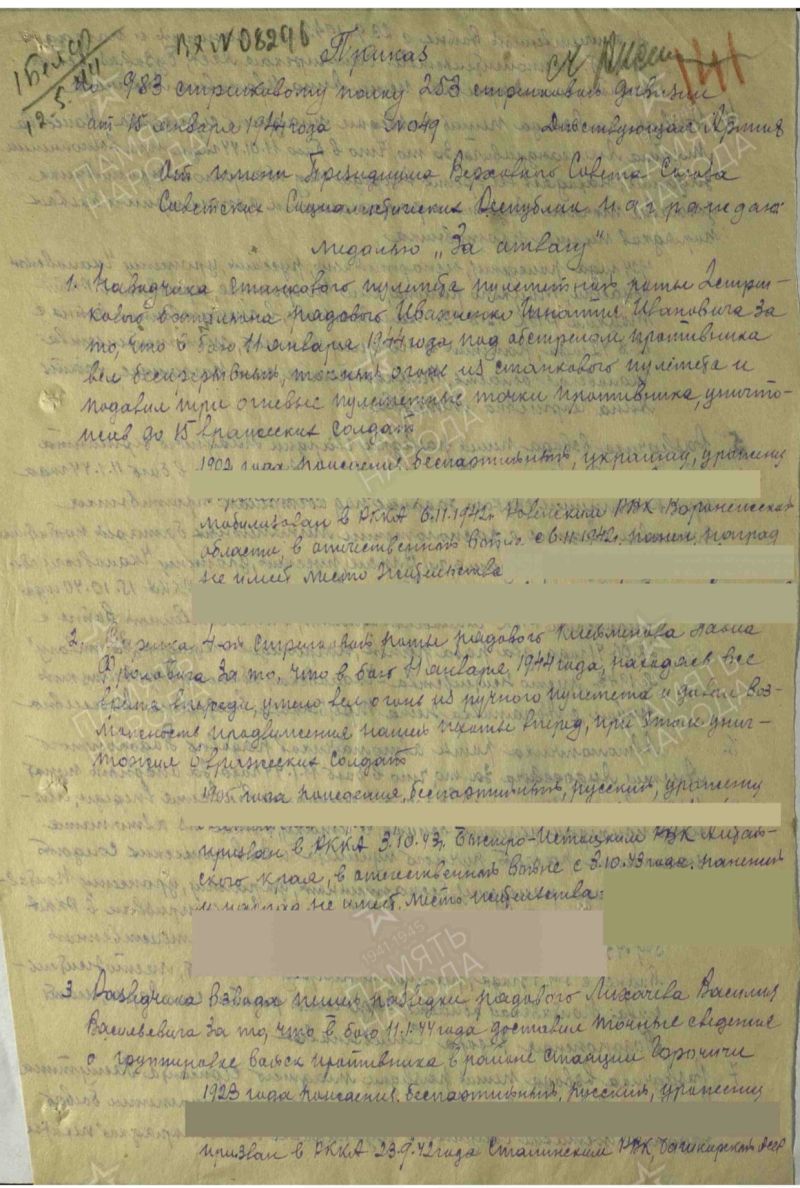 Вх N 08296
1 Бел ф
12.5.44
Приказ
по 983 стрелковому полку 253 стрелковой дивизии
от 15 января 1944 года N 049 Действующая Армия
От имени Президиума Верховного Совета Союза
Советских Социалистических Республик награждаю
медалью „За отвагу"
1. Наводчика станкового пулемета пулеметной роты 2 стрел-
кового батальона рядового Ивахненко Игнатия Ивановича за
то, что в бою 11 января 1944 года, под обстрелом противника
вел беспрерывный, точный огонь из станкового пулемета и
подавил три огневые пулеметные точки противника, уничто-
жив до 15 вражеских солдат
1902 года рождения, беспартийный, украинец, уроженец
мобилизован в РККА 6.11.1942г. РВК Воронежской
области, в отечественной войне с 6.11.1942г. ранен, наград
не имеет место жительства
2. Стрелка 4-ой стрелковой роты рядового Павла
Фроловича за то, что в бою 11 января 1944 года, находясь все
время впереди, умело вел огонь из ручного пулемета и давал воз-
можность продвижения нашей пехоты вперед, при этом унич-
тожил 6 вражеских солдат
1905 года рождения, беспартийный, русский, уроженец
призван в РККА 3.10.43г. Быстро-Истокским РВК Алтай-
ского края, в отечественной войне с 3.10.43 года. ранений
и наград не имеет. место жительства:
3. Разведчика взвода пешей разведки рядового Лихачева Василия
Васильевича за то, что в бою 11.1.44 года доставил точные сведения
о группировке войск противника в районе станции
1923 года рождения, беспартийный, русский, уроженец
призван в РККА 23.9.42 года Сталинским РВК, Башкирской АССР